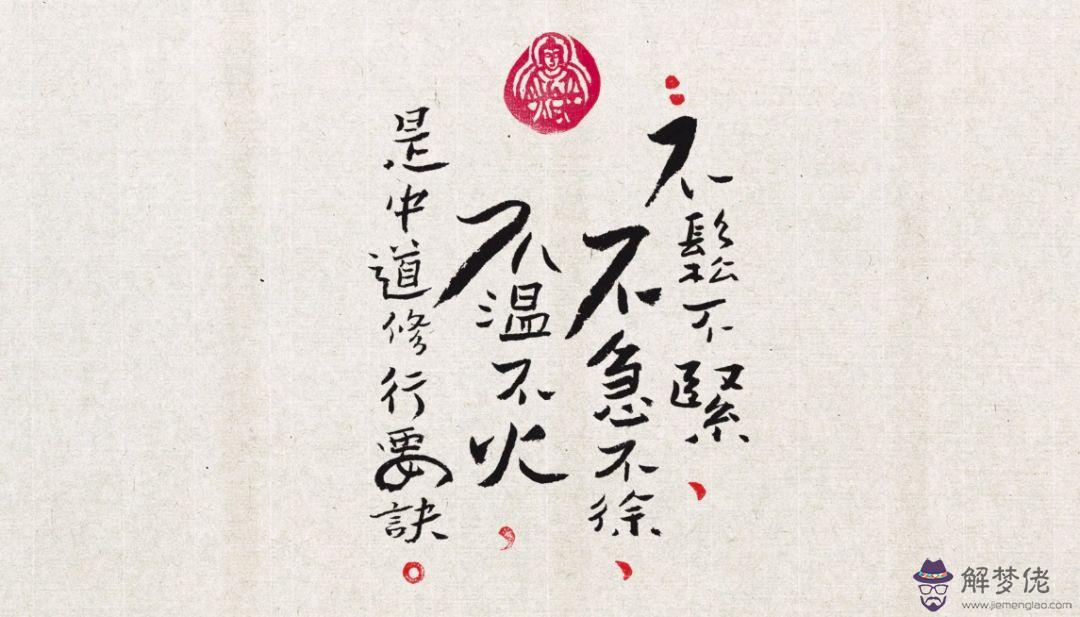 不鬆不緊、
不急不徐、
不温不火，
是中道修行要訣。
解梦佬
www.jiemenglao.com